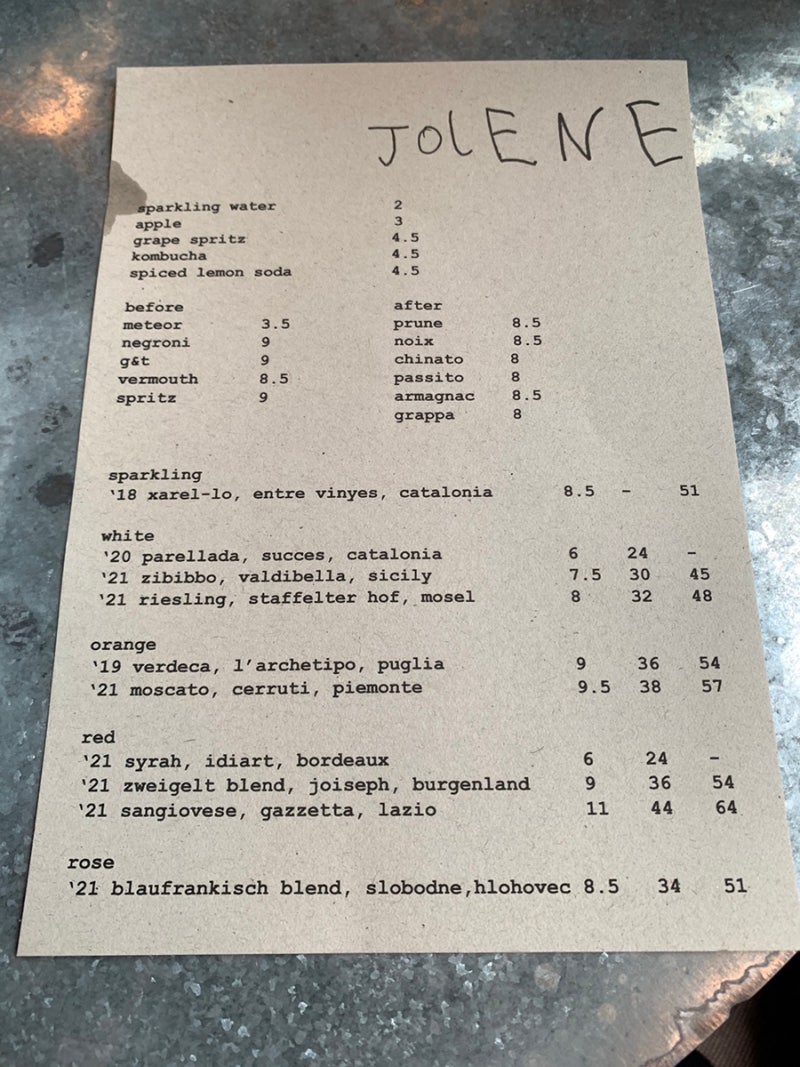 JOLENE
sparkling water 2
apple 3
grape spritz 4.5
kombucha 4.5
spiced lemon soda 4.5
before after
meteor 3.5 prune 8.5
negroni 9 noix 8.5
g&t 9 chinato 8
vermouth 8.5 passito 8
spritz 9 armagnac 8.5
grappa 8
sparkling
'18 xarel-lo, entre vinyes, catalonia 8.5 - 51
white
'20 parellada, succes, catalonia 6 24 -
'21 zibibbo, valdibella, sicily 7.5 30 45
'21 riesling, staffelter hof, mosel 8 32 48
orange
'19 verdeca, l'archetipo, puglia 9 36 54
'21 moscato, cerruti, piemonte 9.5 38 57
red
'21 syrah, idiart, bordeaux 6 24 -
'21 zweigelt blend, joiseph, burgenland 9 36 54
'21 sangiovese, gazzetta, lazio 11 44 64
rose
'21 blaufrankisch blend, slobodne,hlohovec 8.5 34 51